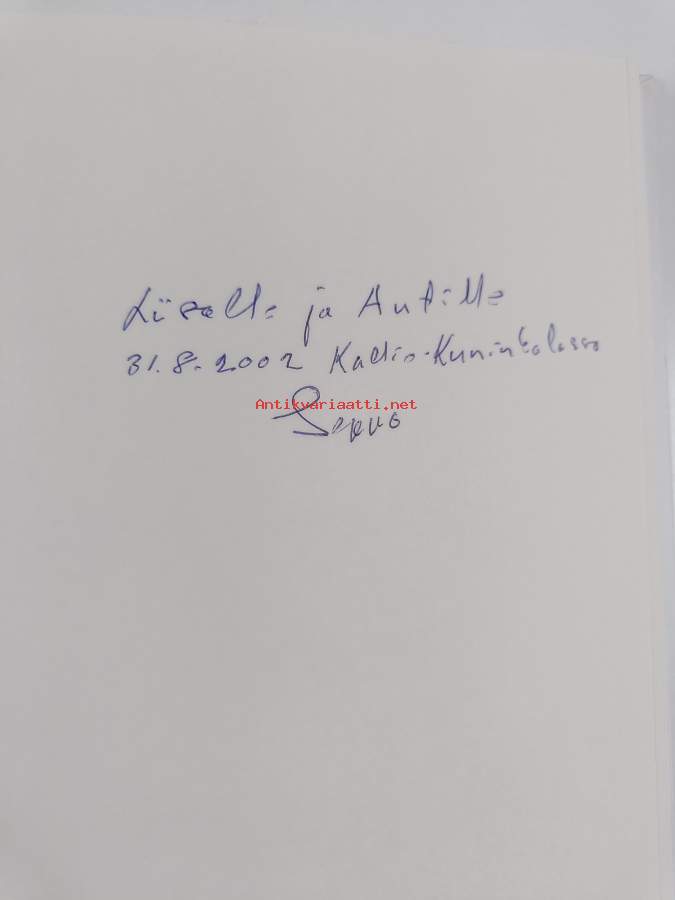 Liisalle ja Antille
31.8.2002 Kallio-Kuninkalassa
Antikvariaatti.net
Seppo